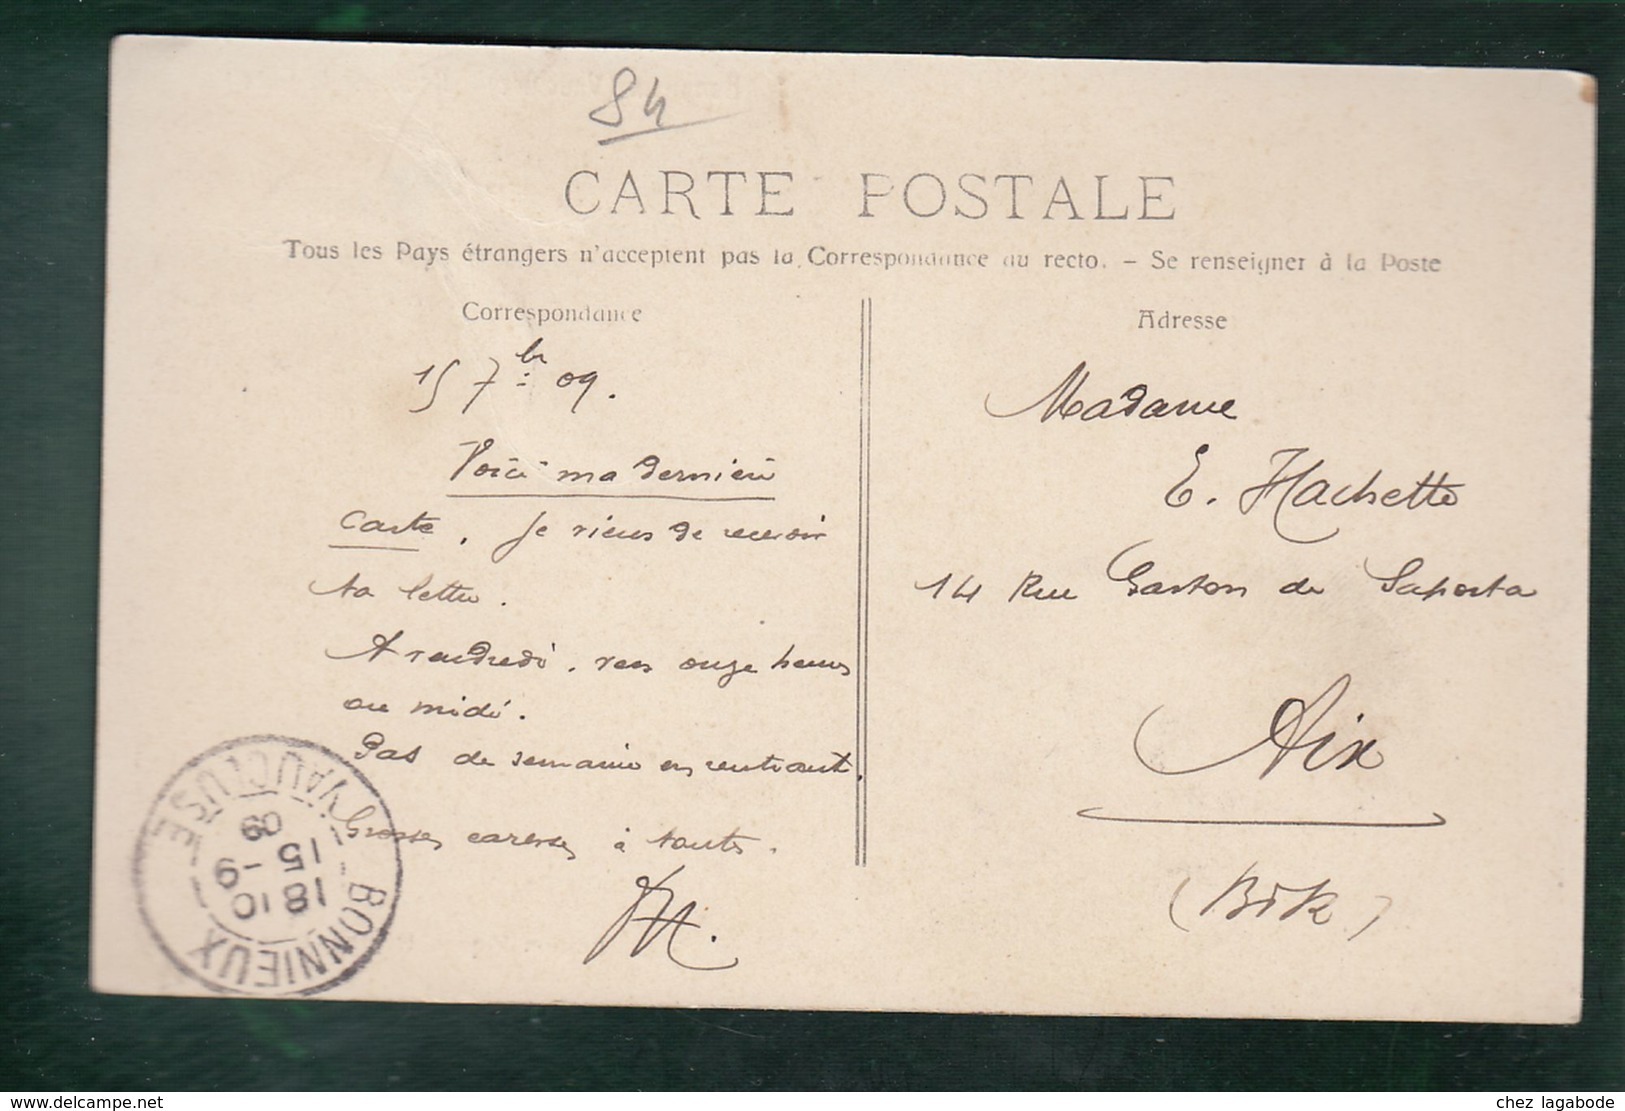 84
CARTE POSTALE
Tous les Pays étrangers n'acceptent pas la Correspondance au recto. - Se renseigner à la Poste
Correspondance
Adresse
15 7br 09.
Voici ma dernière
carte. Je viens de recevoir
ta lettre.
A vendredi. vers onze heures
ou midi.
Pas de semaine en rentrant.
Grosses caresses à toutes.
Madame
E. Hachette
14 Rue Gaston de Saporta
Aix
(BdR)
BONNIEUX
VAUCLUSE
18 10
15 -9
09
delcampe.net
chez lagabode